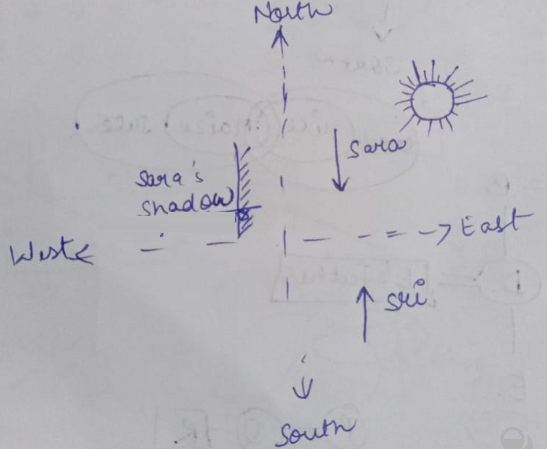 North
Sara
Sara's
shadow
West
East
Sri
South